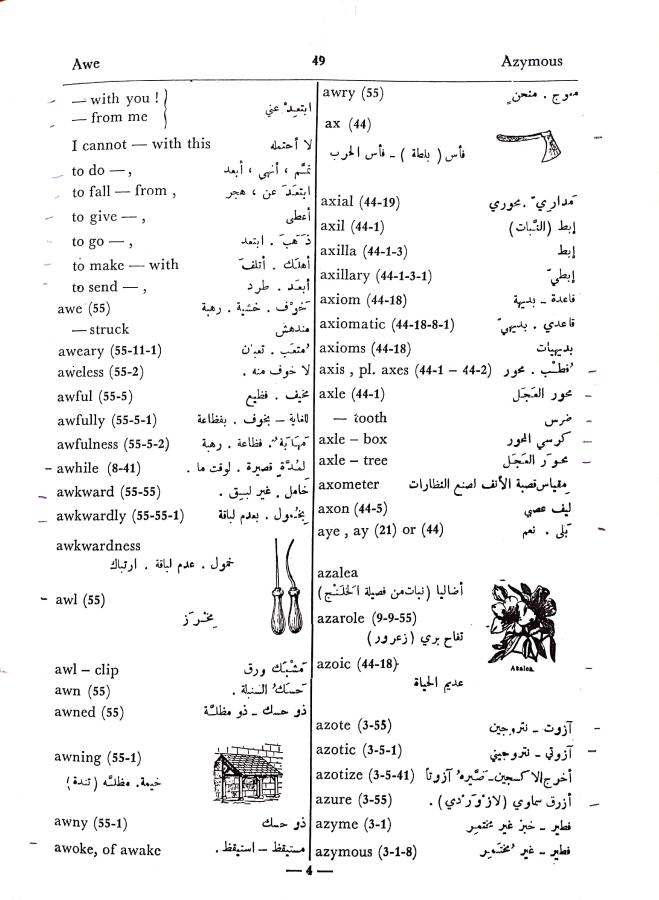 Awe 49 Azymous
— with you !
— from me ابتعد عني
I cannot — with this لا أحتمله
to do — , تمَّم ، أنهى ، أبعد
to fall — from , ابتعدَ عن ، هجر
to give — , أعطى
to go — , ذَهبَ . ابتعد
to make — with أهلك . أتلفَ
to send — , أبعدَ . طرد
awe (55) خَوْف . خشية . رهبة
— struck مندهش
aweary (55-11-1) مُتعَب . تعبان
aweless (55-2) لا خوف منه .
awful (55-5) مخيف . فظيع
awfully (55-5-1) للغاية – بخوف . بفظاعة
awfulness (55-5-2) مَهَابَة . فظاعة . رهبة
awhile (8-41) لمُدَّةٍ قصيرة . لوقت ما .
awkward (55-55) خامل . غير لبق .
awkwardly (55-55-1) بخُمول . بعدم لباقة
awkwardness
خمول . عدم لباقة . ارتباك
awl (55)
مِخرَز
awl – clip مَشْبَك ورق
awn (55) حَسَكُ السنبلة .
awned (55) ذو حسك ـ ذو مظلَّة
awning (55-1)
خيمة . مظلَّة ( تندة )
awny (55-1) ذو حسك
awoke, of awake مستيقظ – استيقظ .
awry (55) معوج . منحنٍ
ax (44)
فأس ( بلطة ) – فأس الحرب
axial (44-19) مَداريّ . محوري
axil (44-1) إبط (النَّبات)
axilla (44-1-3) إبط
axillary (44-1-3-1) إبطيّ
axiom (44-18) قاعدة ـ بديهة
axiomatic (44-18-8-1) قاعدي . بديهيّ
axioms (44-18) بديهيات
axis , pl. axes (44-1 – 44-2) قُطْب . محور
axle (44-1) محور العَجَل
— tooth ضرس
axle – box كرسي المحور
axle – tree محوَر العَجَل
axometer مِقياس قصبة الأنف لصنع النظارات
axon (44-5) ليف عصبي
aye , ay (21) or (44) بَلى . نعم
azalea
أضاليا (نبات من فصيلة الخَلَنْج)
azarole (9-9-55)
تفاح بري ( زعرور )
Azalea
azoic (44-18)
عديم الحياة
azote (3-55) آزوت ـ نتروجين
azotic (3-5-1) آزوتي ـ نتروجيني
azotize (3-5-41) أخرج الاكسجين – صَيَّرهُ آزوتاً
azure (3-55) أزرق سماوي (لازْوَرْدي) .
azyme (3-1) فطير – خبز غير مختمر
azymous (3-1-8) فطير – غير مُختَمِر
— 4 —